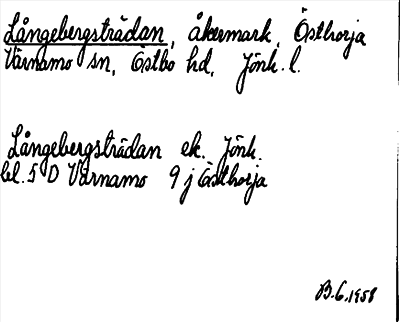 Långebergsträdan, åkermark, Östhorja
Värnamo sn, Östbo hd, Jönk. l.
Långebergsträdan ek. Jönk.
bl. 5 D Värnamo 9 j Östhorja
B.G. 1958